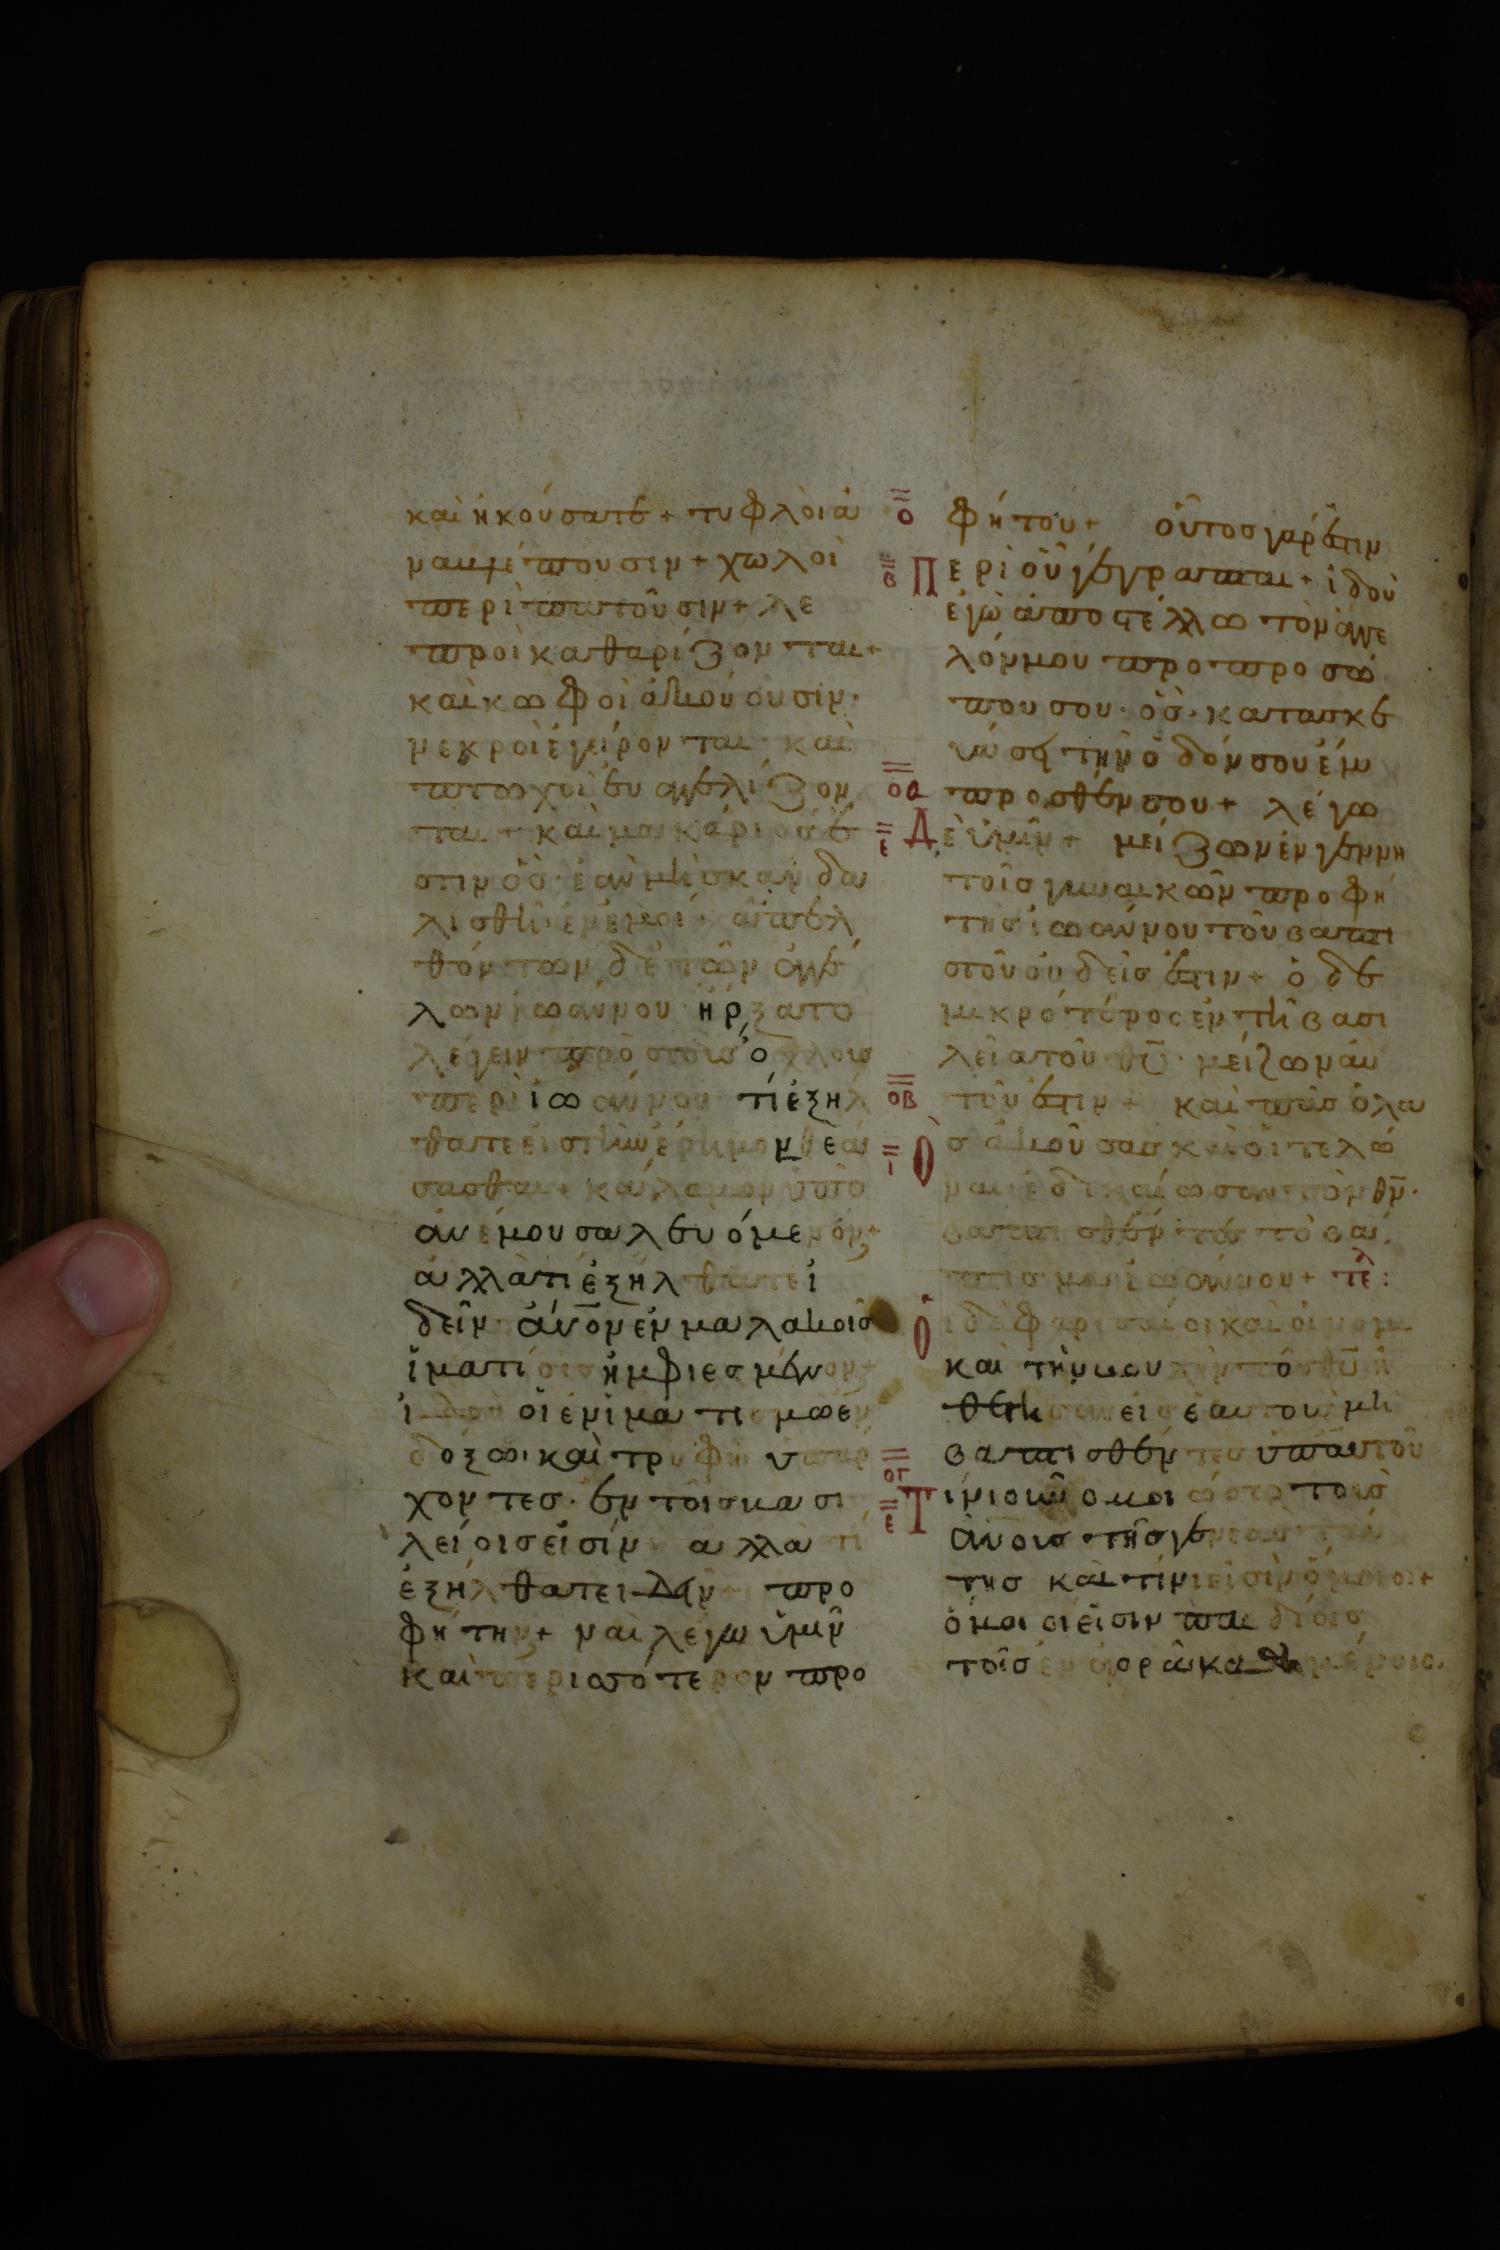 καὶ ἠκούσατε + τυφλοὶ ἀ
ναβλέπουσιν + χωλοὶ
περὶπατοῦσιν + λε
προὶ καθαρίζονται +
καὶ κωφοὶ ἀκούουσιν ·
νεκροὶ ἐγείρονται · καὶ
πτωχοὶ εὐαγγελίζον
ται + καὶ μακάριος ἐ
στιν ὃς · ἐὰν μὴ σκανδα
λισθῆ · ἐν ἐμοί + ἀπελ
θόντων δὲ τῶν ἀγγέ
λων ἰωάννου ἤρξατο
λέγειν πρὸς τοὺς ὄχλους
περὶ ἰωάννου τί ἐξήλ
θατε εἰς τὴν ἔρημον θεά
σασθαι + κάλαμον ὑπὸ
ἀνέμου σαλευόμενον +
ἀλλὰ τί ἐξήλθατε ἰ
δεῖν · ἄνον ἐν μαλακοῖς
ἱματίοις ἠμφιεσμένον +
ἰδοὺ οἱ ἐν ἱματισμῶ ἐν
δόξω · καὶ τρυφῆ ὑπάρ
χοντες · ἐν τοῖς βασι
λείοις εἰσίν ἀλλὰ τί
ἐξήλθατε ἰδεῖν + προ
φήτην + ναὶ λέγω ὑμῖν
καὶ περισσότερον προ
ο
φήτου + οὗτος γάρ ἐστιν
β Περὶ οὗ γέγραπται + ἰδοὺ
ἐγὼ ἀποστέλλω τὸν ἄγγε
λόν μου πρὸ προσώ
που σου · ὃς · κατασκε
υάσει τὴν ὁδόν σου ἔμ
οα
προσθέν σου + λέγω
ε Δὲ ὑμῖν + μείζων ἐν γεννη
τοῖς γυναικῶν προφή
της ἰωάννου τοῦ βαπτι
στοῦ οὐδείς ἐστιν + ὁ δὲ
μικρότερος ἐν τῆ βασι
λεία τοῦ θυ · μείζων αὐ
οβ
τοῦ ἐστιν + καὶ πᾶς ὁ λα
ι Ὸς ἀκούσας καὶ οἱ τελῶ
ναι ἐδικαίωσαν τὸν θν ·
βαπτισθέντες τὸ βά
πτισμα ἰωάννου + τελ :
Οἱ δὲ φαρισαῖοι καὶ οἱ νομι
καὶ τὴν βουλὴν τοῦ θυ ἠ
θέτησαν εἰς ἑαυτοὺς μὴ
βαπτισθέντες ὑπ' αὐτοῦ
ογ
ε Τίνι οὖν ὁμοιώσω τοὺς
ἀνους τῆς γενεᾶς ταύ
της καὶ τίνι εἰσὶν ὅμοιοι +
ὅμοιοί εἰσιν παιδίοις
τοῖς ἐν ἀγορᾶ καθημένοις